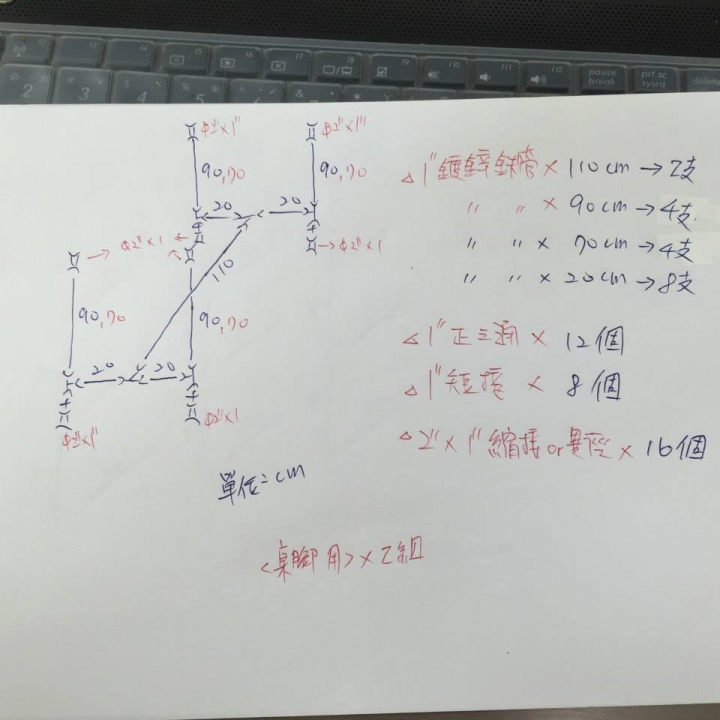 Φ2"×1"
Φ2"×1"
90,70
90,70
20
20
Φ2"×1
Φ2"×1
110
90,70
90,70
20
20
Φ2"×1"
Φ2"×1
單位=cm
<桌腳用>×2組
△1"鍍鋅鉄管×110cm→2支
" " ×90cm→4支
" " ×70cm→4支
" " ×20cm→8支
△1"正三通×12個
△1"短接×8個
△2"×1"縮接or異徑×16個
pause
break
prt sc
sysrq
delete